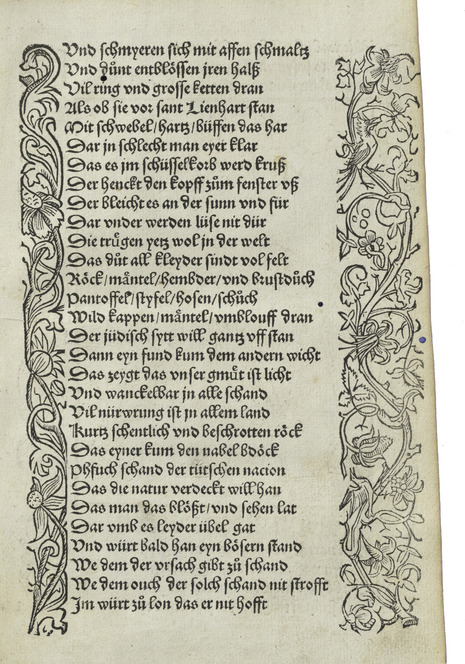 Vnd schmyeren sich mit affen schmaltz
Vnd dünt entblössen jren halß
Vil ring vnd grosse ketten dran
Als ob sie vor sant Lienhart stan
Mit schwebel/hartz/büffen das har
Dar jn schlecht man eyer klar
Das es jm schüsselkorb werd kruß
Der henckt den kopff zům fenster vß
Der bleicht es an der sunn vnd für
Dar vnder werden lüse nit dür
Die trůgen yetz wol jn der welt
Das důt all kleyder sindt vol felt
Röck/mäntel/hembder/vnd brustdůch
Pantoffel/styfel/hosen/schůch
Wild kappen/mäntel/vmblouff dran
Der jüdisch sytt will gantz vff stan
Dann eyn fund kum dem andern wicht
Das zeygt das vnser gmůt ist licht
Vnd wanckelbar jn alle schand
Vil nüwrung ist jn allem land
Kurtz schentlich vnd beschrotten röck
Das eyner kum den nabel bdöck
Phfuch schand der tütschen nacion
Das die natur verdeckt will han
Das man das blößt/vnd sehen lat
Dar vmb es leyder übel gat
Vnd würt bald han eyn bösern stand
We dem der vrsach gibt zů schand
We dem ouch der solch schand nit strofft
Jm würt zů lon das er nit hofft